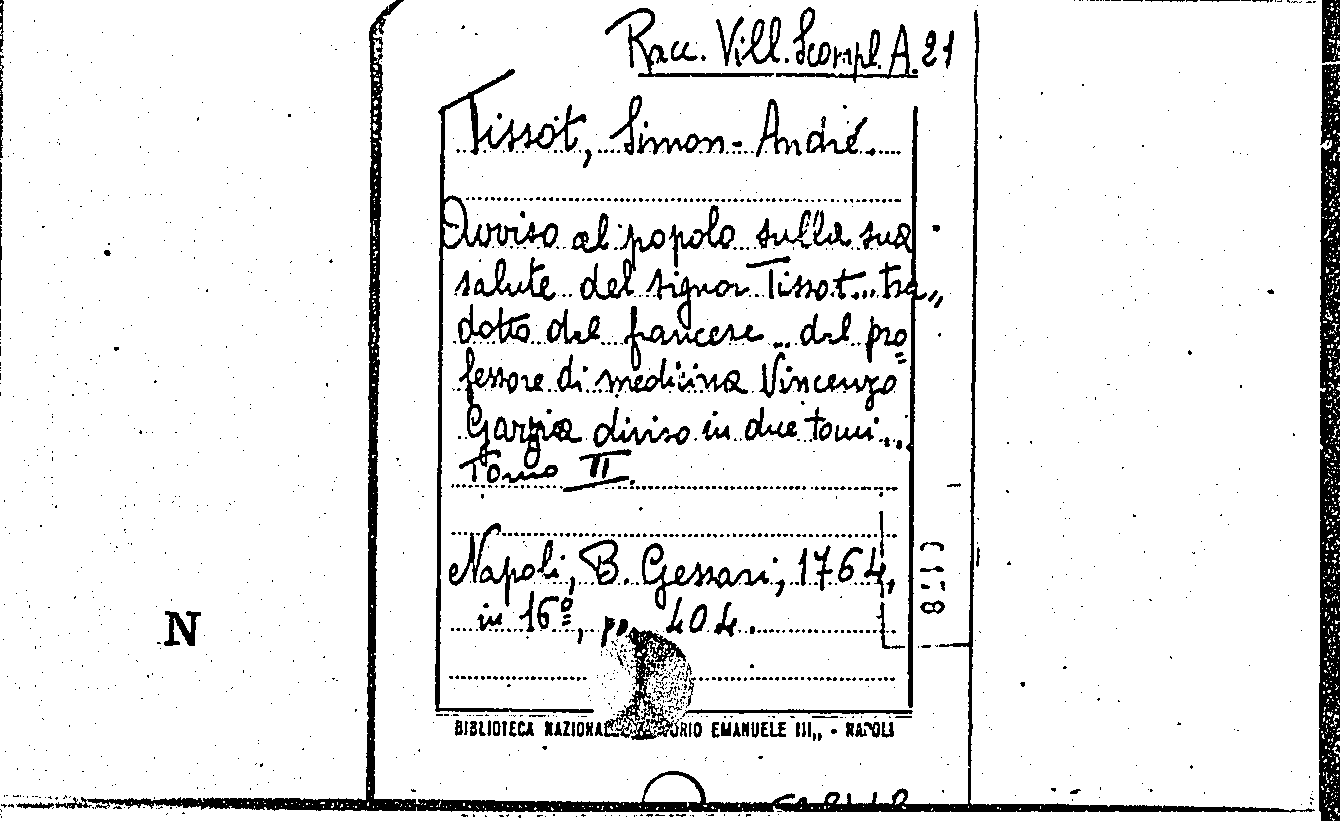 Racc. Vill. Scompl. A. 21
Tissot, Simon-André.
Avviso al popolo sulla sua
salute del signor Tissot... tra„
dotto dal francese... dal pro=
fessore di medicina Vincenzo
Garzia diviso in due tomi...
Tomo II.
Napoli, B. Gessari, 1764,
in 16º, pp. 404.
N
BIBLIOTECA NAZIONALE EMANUELE III„ - NAPOLI